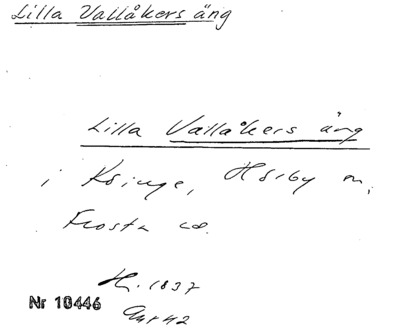 Lilla Vallåkers äng
Lilla Vallåkers äng
i Kringe, Hörby sn,
Frosta hd.
H. 1837
Nr 10446